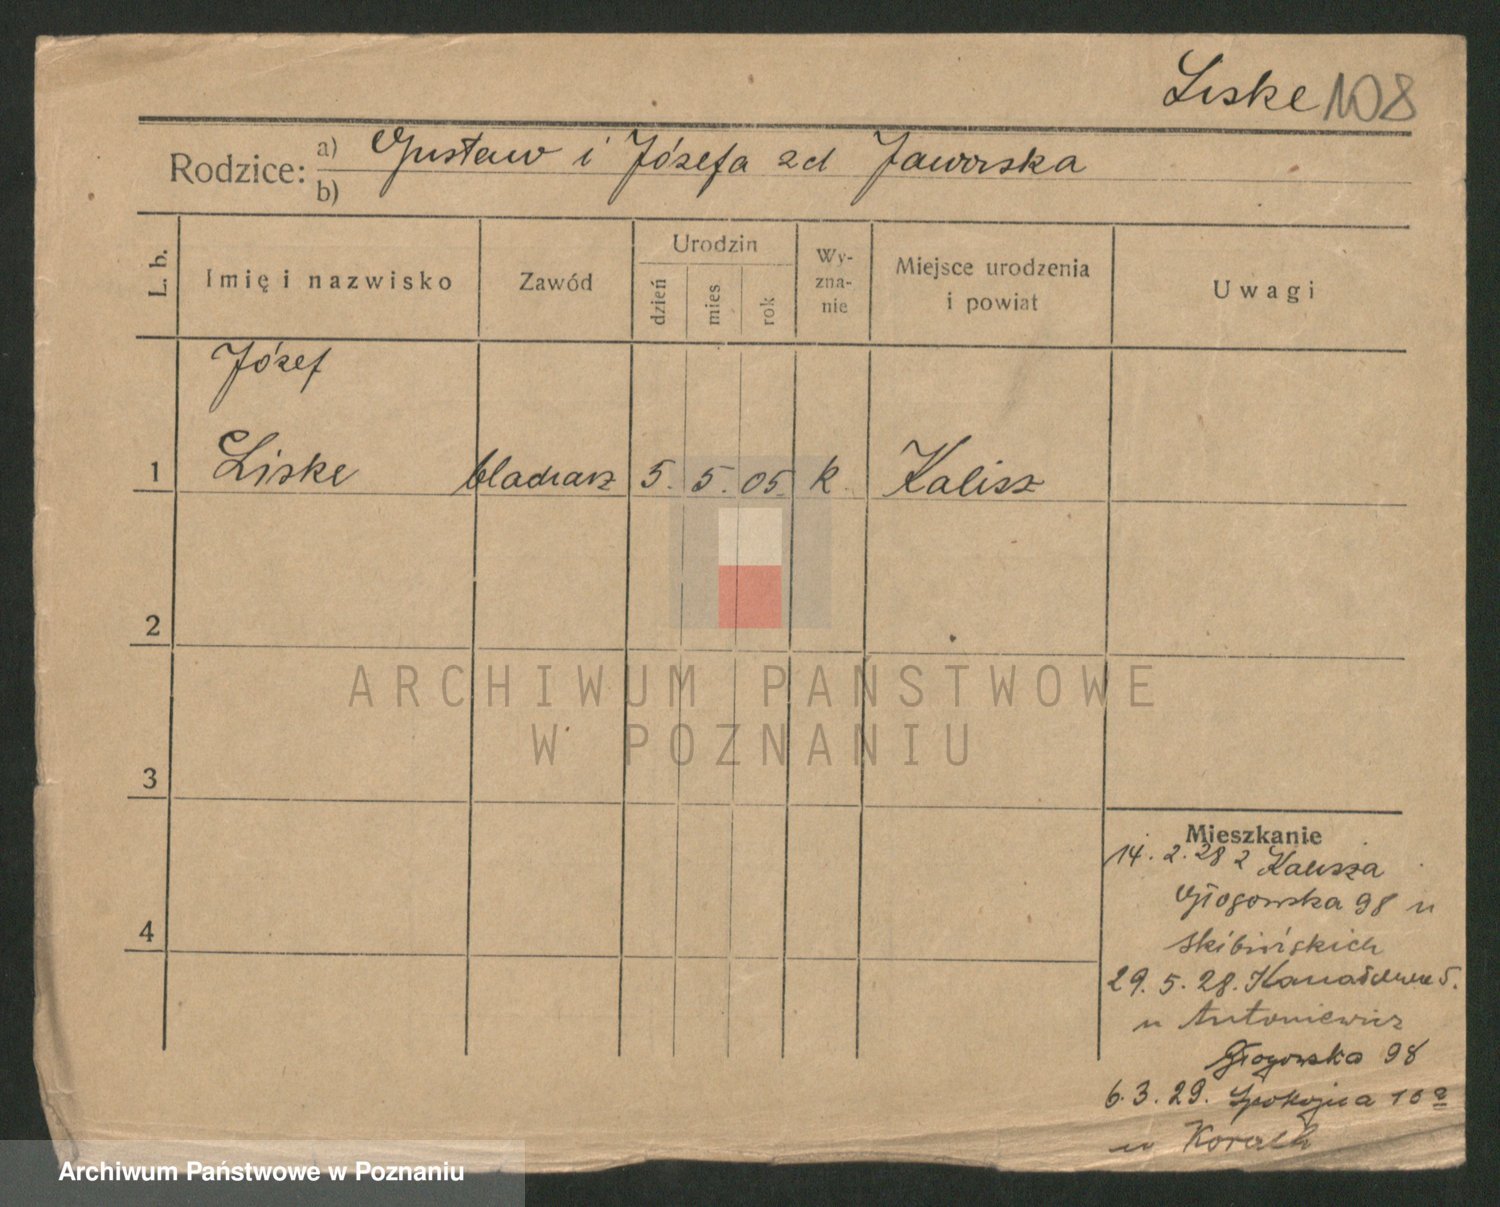 Liske 108
Rodzice: a) Gustaw i Józefa zd Jaworska
b)
L. b.
Imię i nazwisko
Zawód
Urodzin
dzień
mies
rok
Wy-
zna-
nie
Miejsce urodzenia
i powiat
Uwagi
Józef
1 Liske blacharz 5. 5. 05. k. Kalisz
2
3
4
ARCHIWUM PAŃSTWOWE
W POZNANIU
Mieszkanie
14. 2. 28 z Kalisza
Głogowska 98 u
Skibińskich
29. 5. 28. 5.
u Antoniewicz
Głogowska 98
6. 3. 29. Spokojna 10 a
u
Archiwum Państwowe w Poznaniu